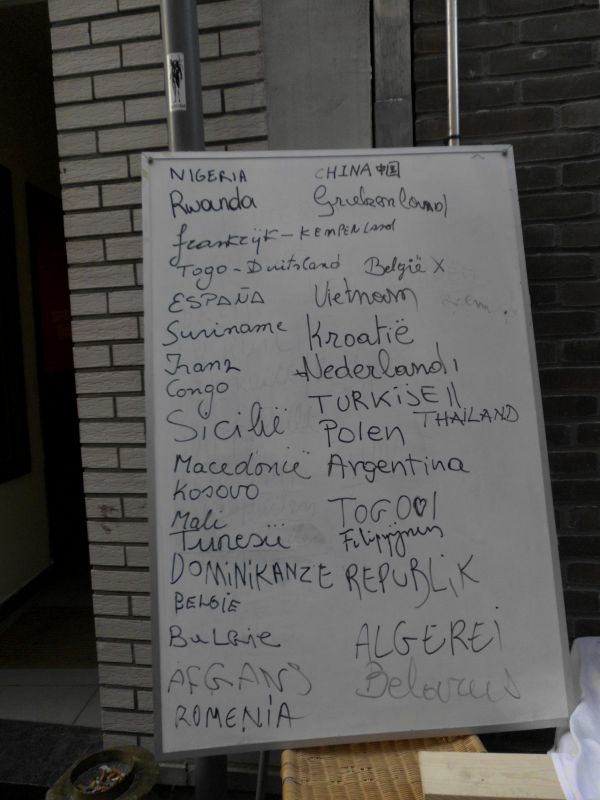 NIGERIA CHINA 中国
Rwanda Griekenland
frankrijk - KEMPENLand
Togo - Duitsland België X
ESPAÑA Vietnam
Suriname Kroatië
Iranz Nederland 1
Congo TURKIJE 11
Sicilië Polen THAILAND
Macedonië Argentina
Kosovo
Mali TOGO♡1
Tunesië Filippijnen
DOMINIKANZE REPUBLIK
BELGIE
BuLgie ALGEREi
AFGANS Belarus
ROMENIA